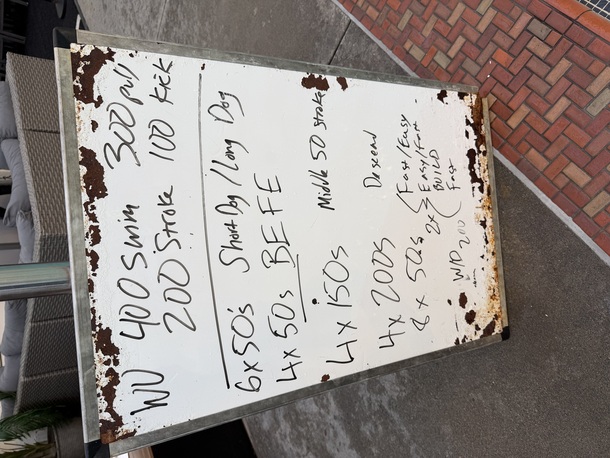 WU 400 Swim 300 pull
200 Stroke 100 Kick
6x50's Short Dog/Long Dog
4x50s BEFE
4x150s Middle 50 stroke
4x200s Descend
8x50s 2x { Fast/Easy
Easy/Fast
BUILD
Fast
W/D 200